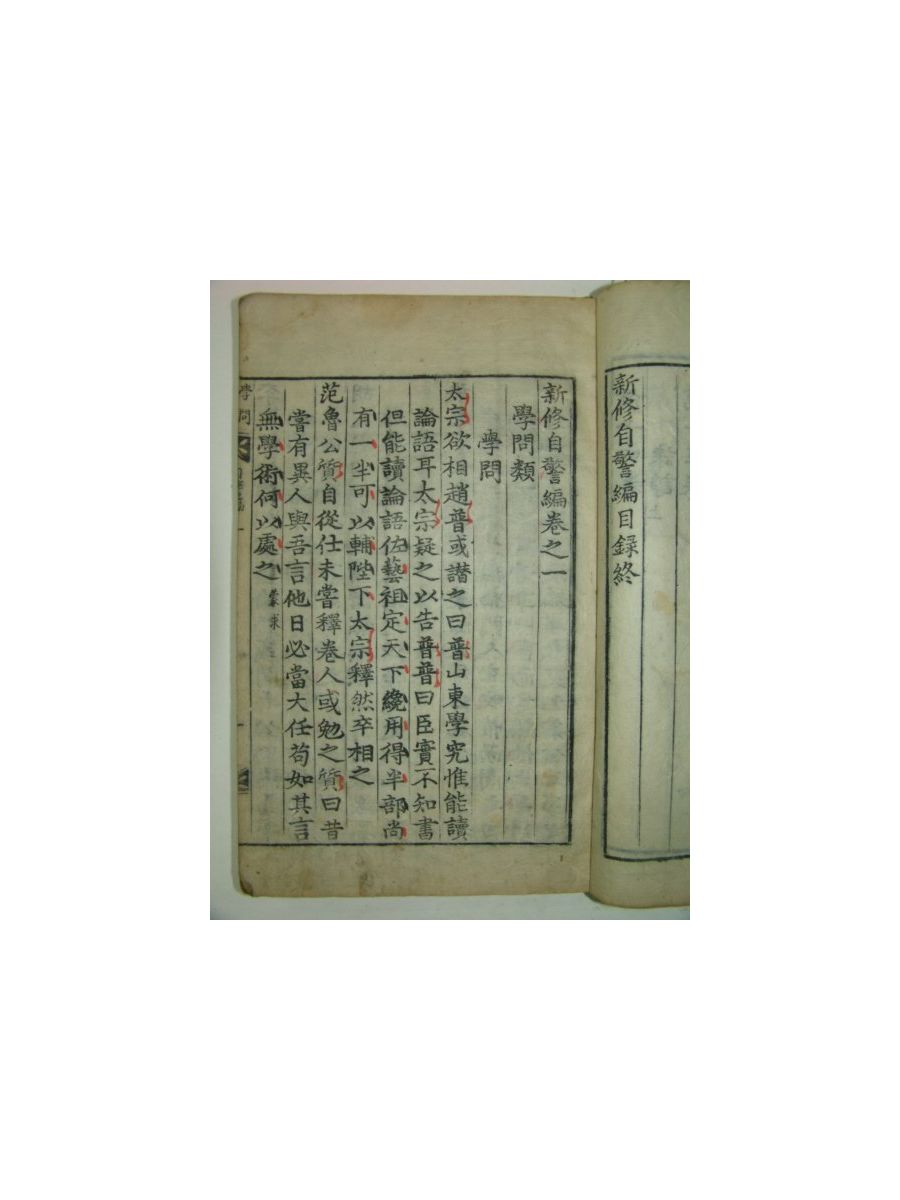 新修自警編目錄終
新修自警編卷之一
學問類
學問
太宗欲相趙普或譖之曰普山東學究惟能讀
論語耳太宗疑之以告普普曰臣實不知書
但能讀論語佐藝祖定天下纔用得半部尚
有一半可以輔陛下太宗釋然卒相之
范魯公質自從仕未嘗釋卷人或勉之質曰昔
嘗有異人與吾言他日必當大任苟如其言
無學術何以處之
學問